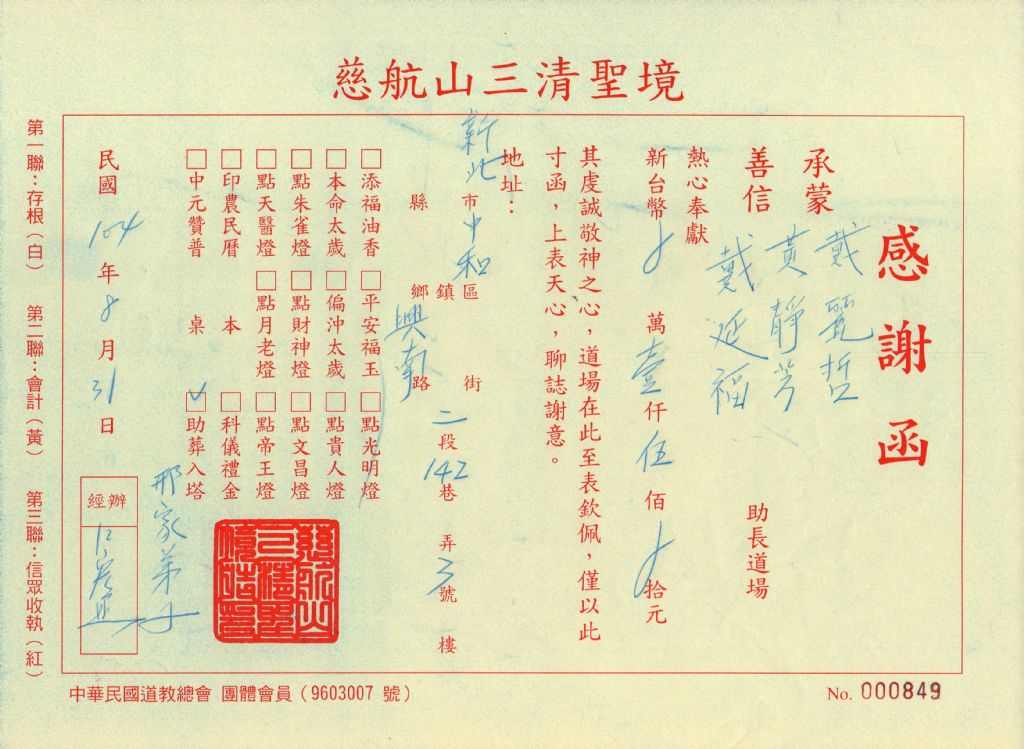 慈航山三清聖境
感謝函
承蒙
戴㲄哲
黃靜芳
善信 戴延福 助長道場
熱心奉獻
新台幣 萬壹仟伍佰 拾元
其虔誠敬神之心，道場在此至表欽佩，僅以此
寸函，上表天心，聊誌謝意。
地址：
新北市中和區
縣 鄉鎮
興南路 街 二段142巷 弄3號 樓
□添福油香 □平安福玉 □點光明燈
□本命太歲 □偏沖太歲 □點貴人燈
□點朱雀燈 □點財神燈 □點文昌燈
□點天醫燈 □點月老燈 □點帝王燈
□印農民曆 本 □科儀禮金
□中元贊普 桌 ☑助葬入塔
邢家弟子
民國104年8月31日
經辦
慈航山三清聖境
第一聯：存根（白） 第二聯：會計（黃） 第三聯：信眾收執（紅）
中華民國道教總會 團體會員（9603007 號）
No. 000849